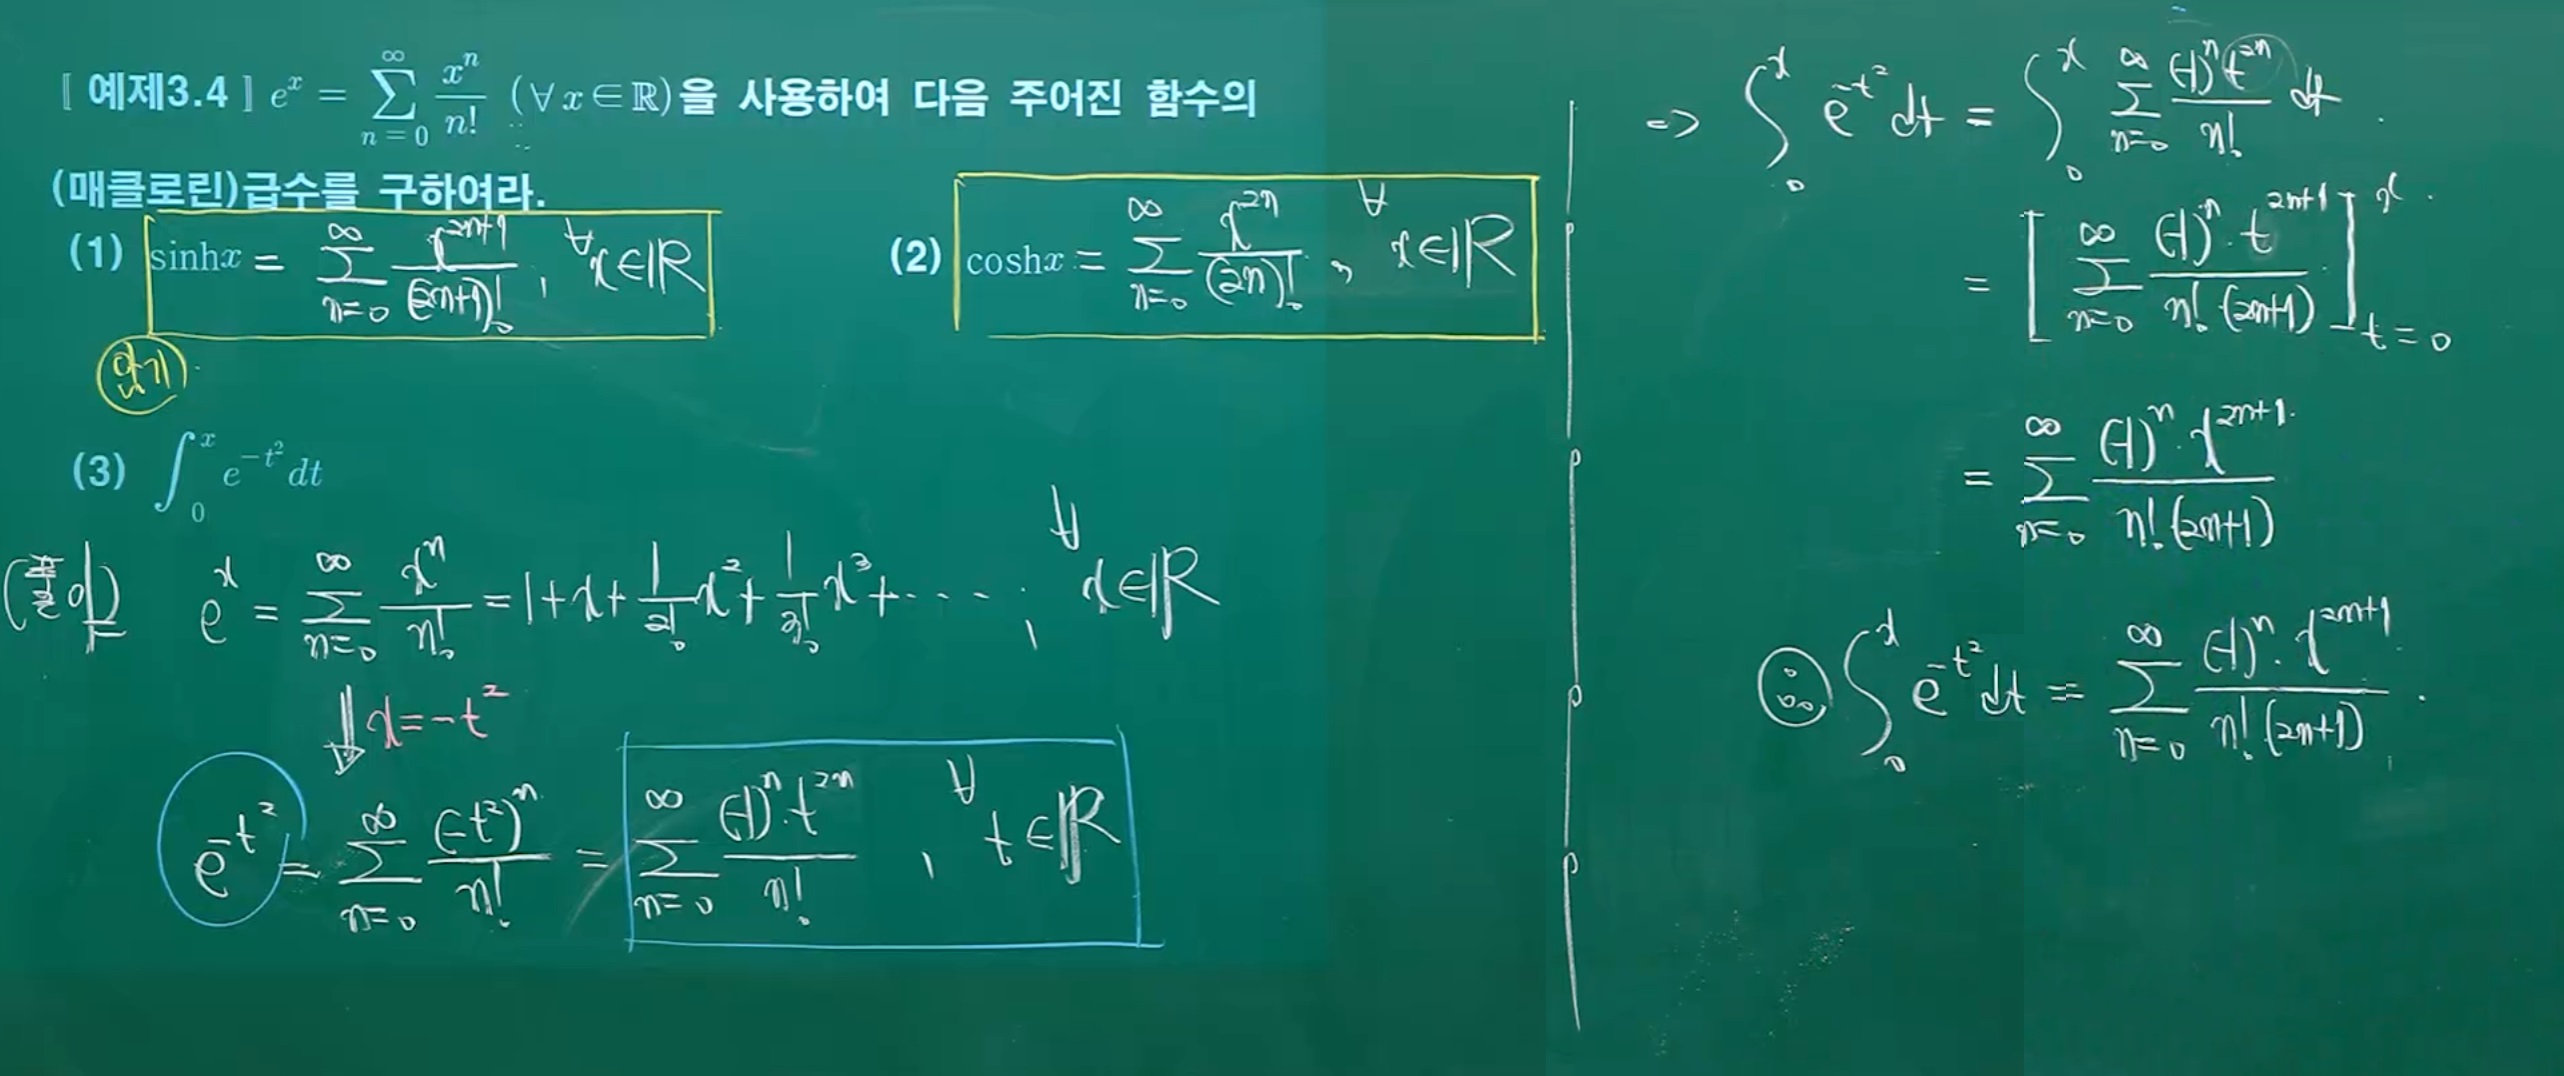 [ 예제3.4 ] e^x = ∑_{n=0}^{∞} x^n/n! (∀x∈ℝ)을 사용하여 다음 주어진 함수의
(매클로린)급수를 구하여라.
(1) sinhx = ∑_{n=0}^{∞} x^{2n+1}/(2n+1)! , ∀x∈ℝ
(2) coshx = ∑_{n=0}^{∞} x^{2n}/(2n)! , ∀x∈ℝ
암기
(3) ∫_0^x e^{-t²} dt
(풀이) e^x = ∑_{n=0}^{∞} x^n/n! = 1+x+1/2! x²+1/3! x³+···· , ∀x∈ℝ
⇓ x=-t²
e^{-t²} = ∑_{n=0}^{∞} (-t²)^n/n! = ∑_{n=0}^{∞} (-1)^n·t^{2n}/n! , ∀t∈ℝ
=> ∫_0^x e^{-t²} dt = ∫_0^x ∑_{n=0}^{∞} (-1)^n t^{2n}/n! dt
= [ ∑_{n=0}^{∞} (-1)^n·t^{2n+1}/n!·(2n+1) ]_{t=0}^{x}
= ∑_{n=0}^{∞} (-1)^n·x^{2n+1}/n!(2n+1)
∴ ∫_0^x e^{-t²} dt = ∑_{n=0}^{∞} (-1)^n·x^{2n+1}/n!(2n+1) .